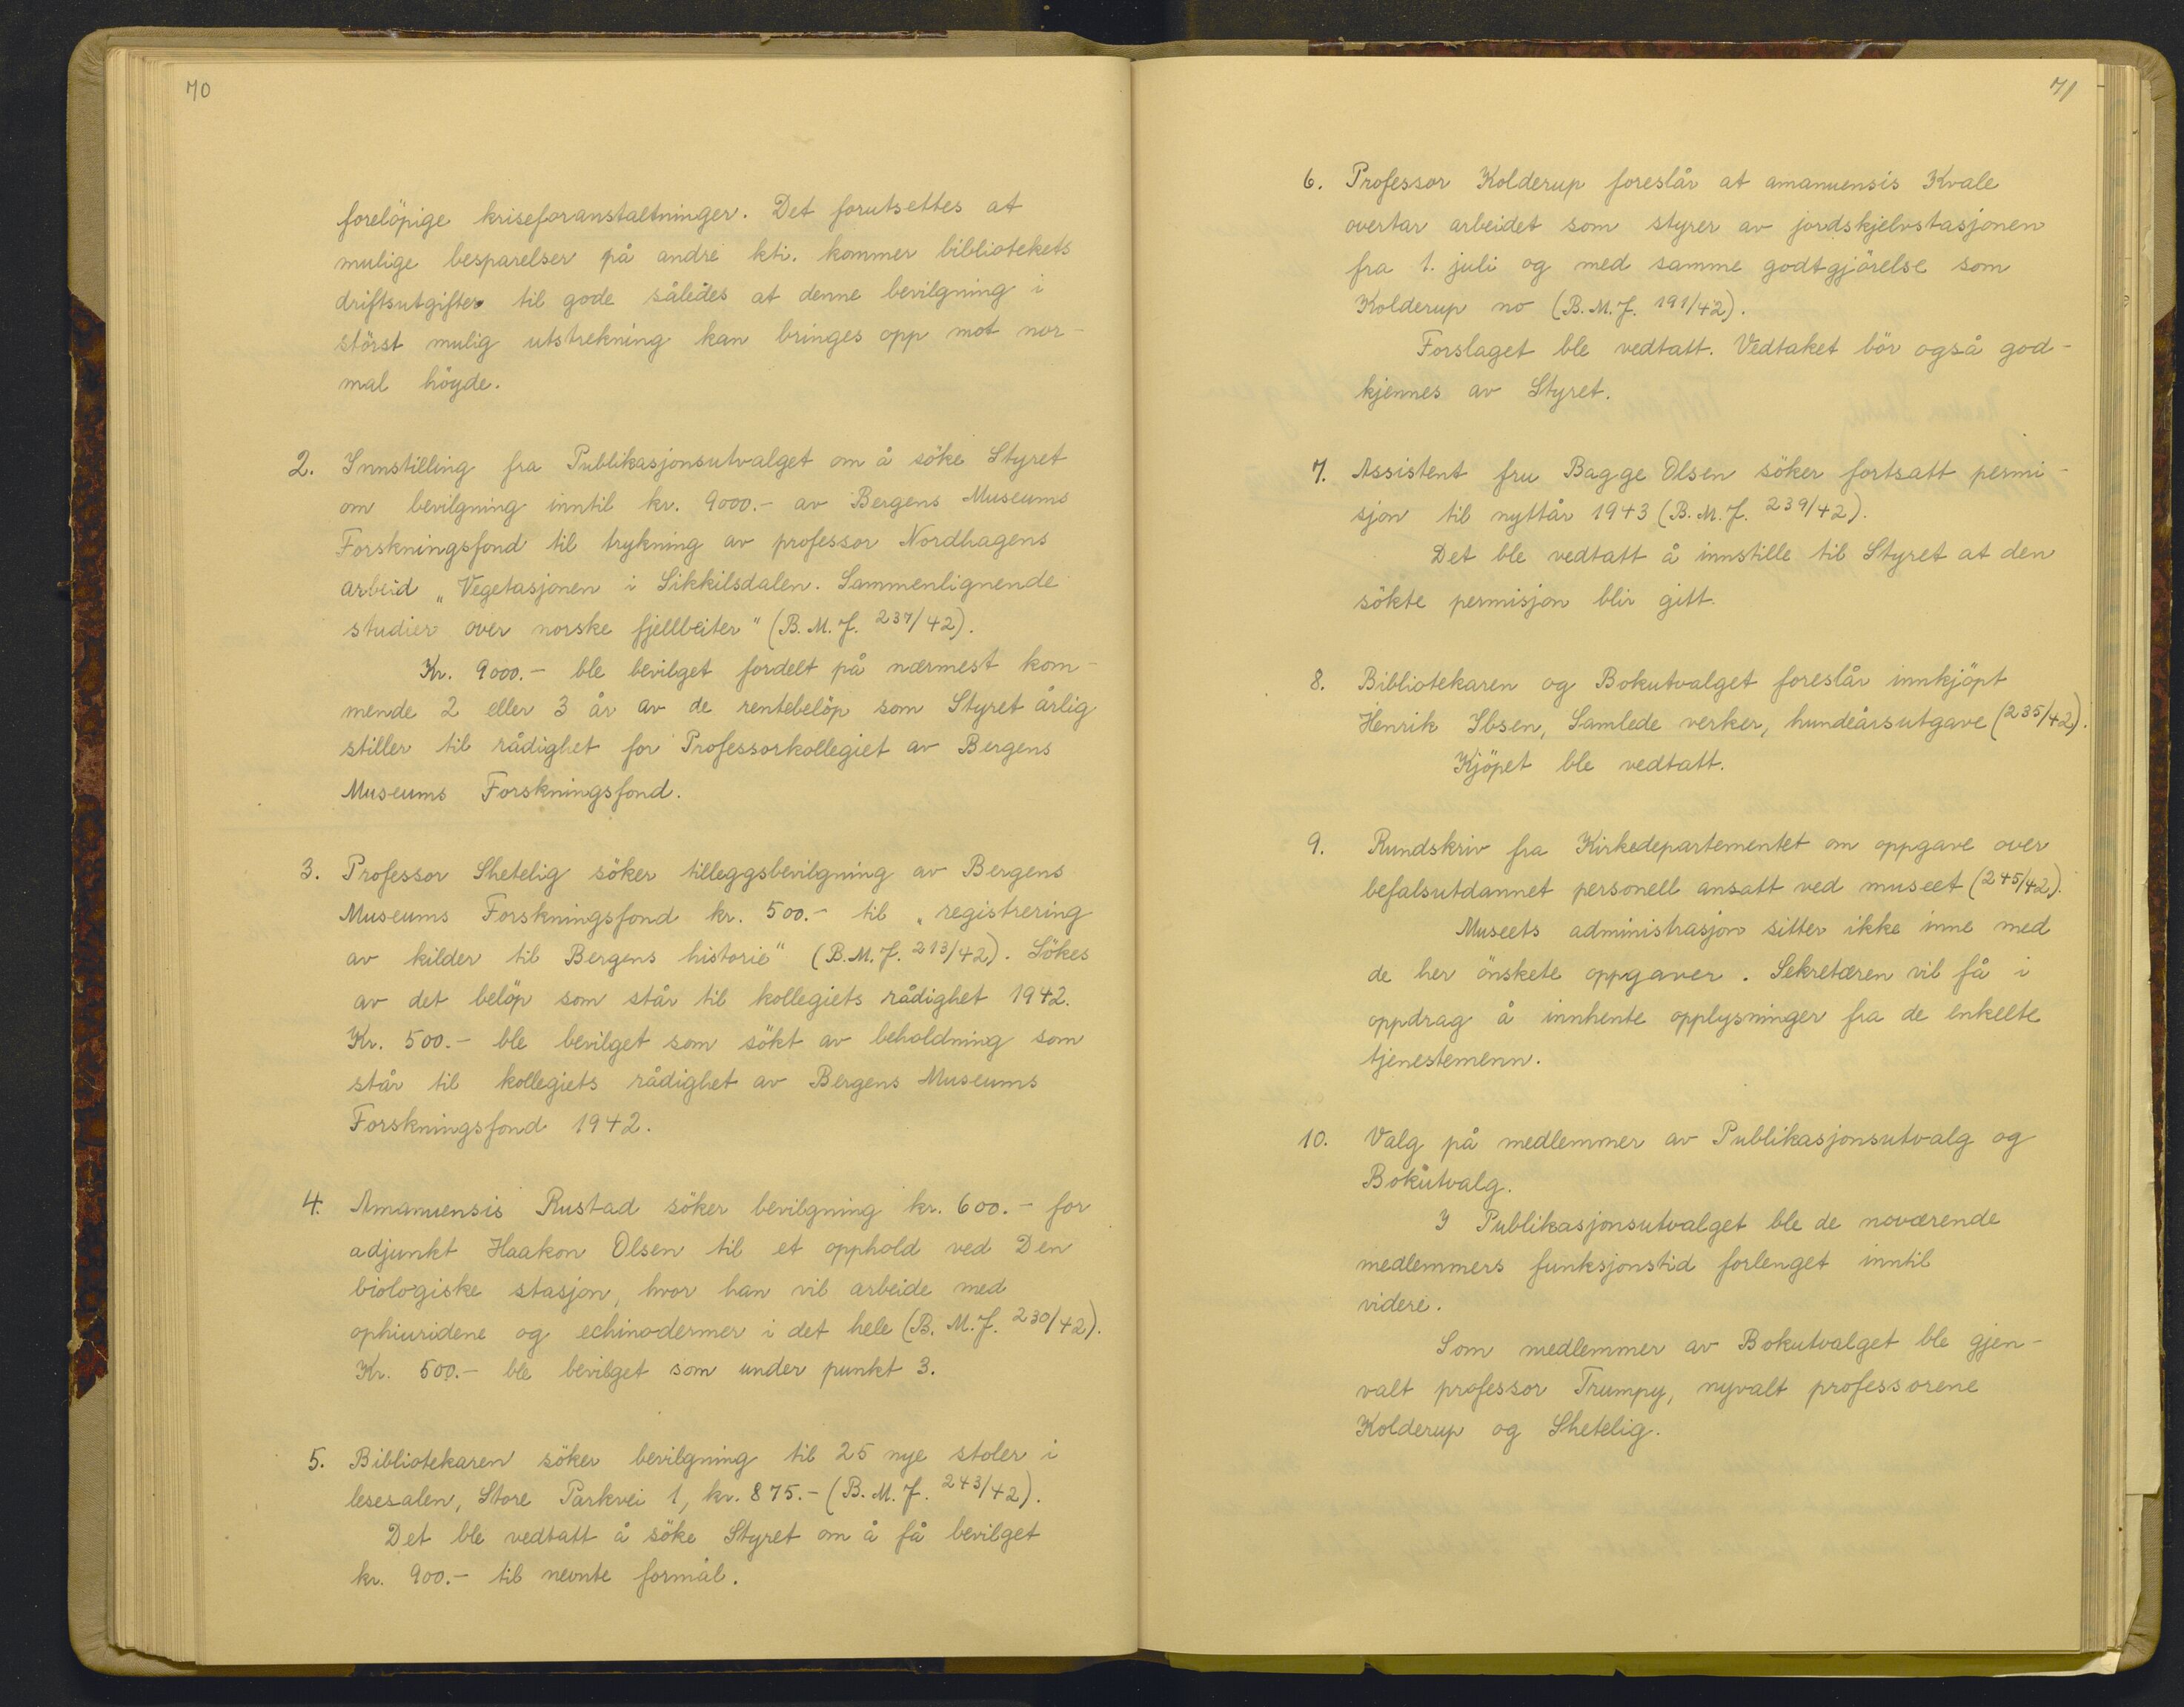 70
forelöpige kriseforanstaltninger. Det forutsettes at
mulige besparelser på andre kti. kommer bibliotekets
driftsutgifter til gode således at denne bevilgning i
störst mulig utstrekning kan bringes opp mot nor-
mal höyde.
2. Innstilling fra Publikasjonsutvalget om å söke Styret
om bevilgning inntil kr. 9000.- av Bergens Museums
Forskningsfond til trykning av professor Nordhagens
arbeid „Vegetasjonen i Sikkilsdalen. Sammenlignende
studier over norske fjellbeiter" (B. M. J. 237/42).
Kr. 9000.- ble bevilget fordelt på nærmest kom-
mende 2 eller 3 år av de rentebelöp som Styret årlig
stiller til rådighet for Professorkollegiet av Bergens
Museums Forskningsfond.
3. Professor Shetelig söker tilleggsbevilgning av Bergens
Museums Forskningsfond kr. 500.- til „registrering
av kilder til Bergens historie" (B.M.J. 213/42). Sökes
av det belöp som står til kollegiets rådighet 1942.
Kr. 500.- ble bevilget som sökt av beholdning som
står til kollegiets rådighet av Bergens Museums
Forskningsfond 1942.
4. Amanuensis Rustad söker bevilgning kr. 600.- for
adjunkt Haakon Olsen til et opphold ved Den
biologiske stasjon, hvor han vil arbeide med
ophiuridene og echinodermer i det hele (B. M. J. 230/42).
Kr. 500.- ble bevilget som under punkt 3.
5. Bibliotekaren söker bevilgning til 25 nye stoler i
lesesalen, Store Parkvei 1, kr. 875.- (B. M. J. 243/42).
Det ble vedtatt å söke Styret om å få bevilget
kr. 900.- til nevnte formål.
71
6. Professor Kolderup foreslår at amanuensis Kvale
overtar arbeidet som styrer av jordskjelvstasjonen
fra 1. juli og med samme godtgjörelse som
Kolderup no (B. M. J. 191/42).
Forslaget ble vedtatt. Vedtaket bör også god-
kjennes av Styret.
7. Assistent fru Bagge Olsen söker fortsatt permi-
sjon til nyttår 1943 (B. M. J. 239/42).
Det ble vedtatt å innstille til Styret at den
sökte permisjon blir gitt.
8. Bibliotekaren og Bokutvalget foreslår innkjöpt
Henrik Ibsen, Samlede verker, hundeårsutgave (235/42).
Kjöpet ble vedtatt.
9. Rundskriv fra Kirkedepartementet om oppgave over
befalsutdannet personell ansatt ved museet (245/42).
Museets administrasjon sitter ikke inne med
de her önskete oppgaver. Sekretæren vil få i
oppdrag å innhente opplysninger fra de enkelte
tjenestemenn.
10. Valg på medlemmer av Publikasjonsutvalg og
Bokutvalg.
I Publikasjonsutvalget ble de noværende
medlemmers funksjonstid forlenget inntil
videre.
Som medlemmer av Bokutvalget ble gjen-
valt professor Trumpy, nyvalt professorene
Kolderup og Shetelig.